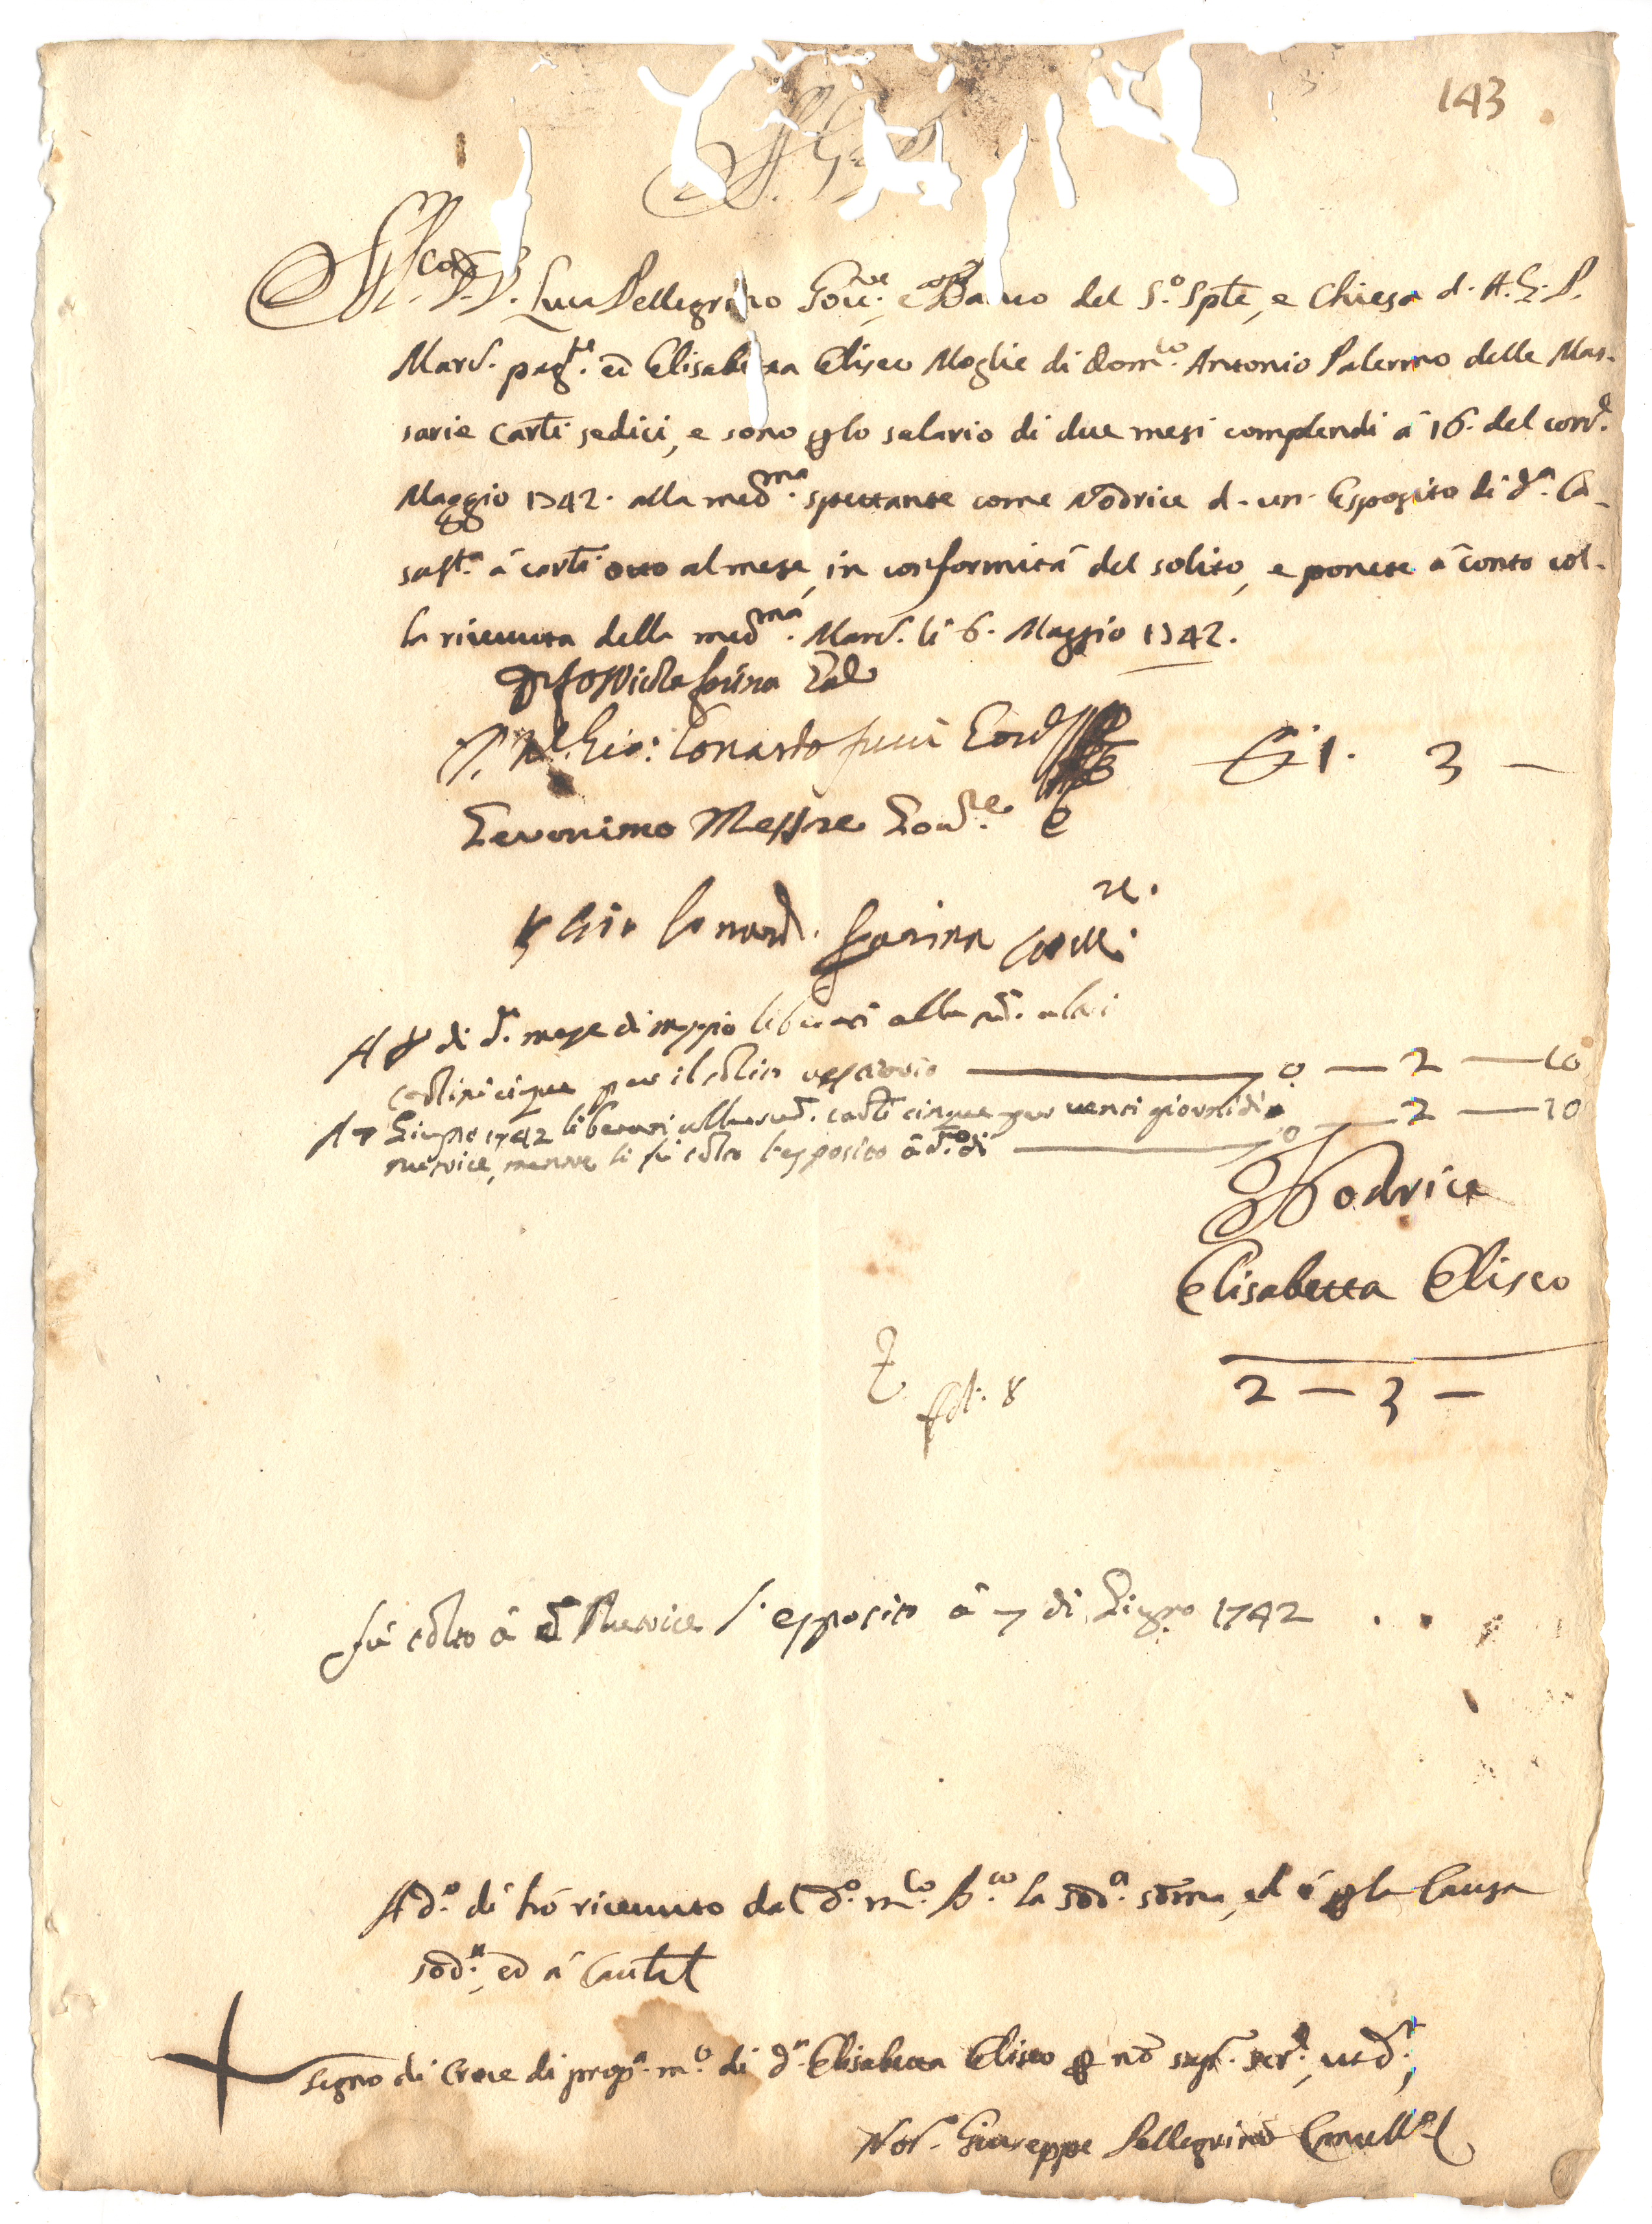 143
M.co D.D. Luca Pellegrino Gov.re, e Banco del S.o Spto, e Chiesa d. A.G.P.
Mard. pag.te ad Elisabetta Eliseo Moglie di Dom.co Antonio Palermo delle Mas-
sarie Carlti sedici, e sono p lo salario di due mesi complendi à 16. del corr.e
Maggio 1742. alla med.ma spettante come Nodrice d. un Esposito di d.a Ca-
sa S.ta à carlti otto al mese, in conformità del solito, e ponete à conto col-
la ricevuta della med.ma. Mard. li 6. Maggio 1742.
Lonardo
1. 3 —
Geronimo Messre Gov.re
Gio Lonard. Farina
A 8 di d.o mese di maggio liberati alla sud.
carlini cinque per il solito — 0 — 2 — 10
A 7 Giugno 1742 liberati alla sud. carlti cinque per venti giorni di
nutrice, mentre li fù tolto l'esposito à d.o dì — 0 — 2 — 10
Nodrice
Elisabetta Eliseo
fol. 8
2 — 3 —
fù tolto à d. Nutrice l'esposito à 7 di Giugno 1742
A d.o dì hò ricevuto dal d.o m.co B.co la sod.a soma, ed è p la Causa
sod.a, ed à Cautel
Segno di Croce di prop.a m.o di d.a Elisabetta Eliseo p nò sap. scr.e, ut d.r,
Not.r Giuseppe Pellegrino Cancell.e